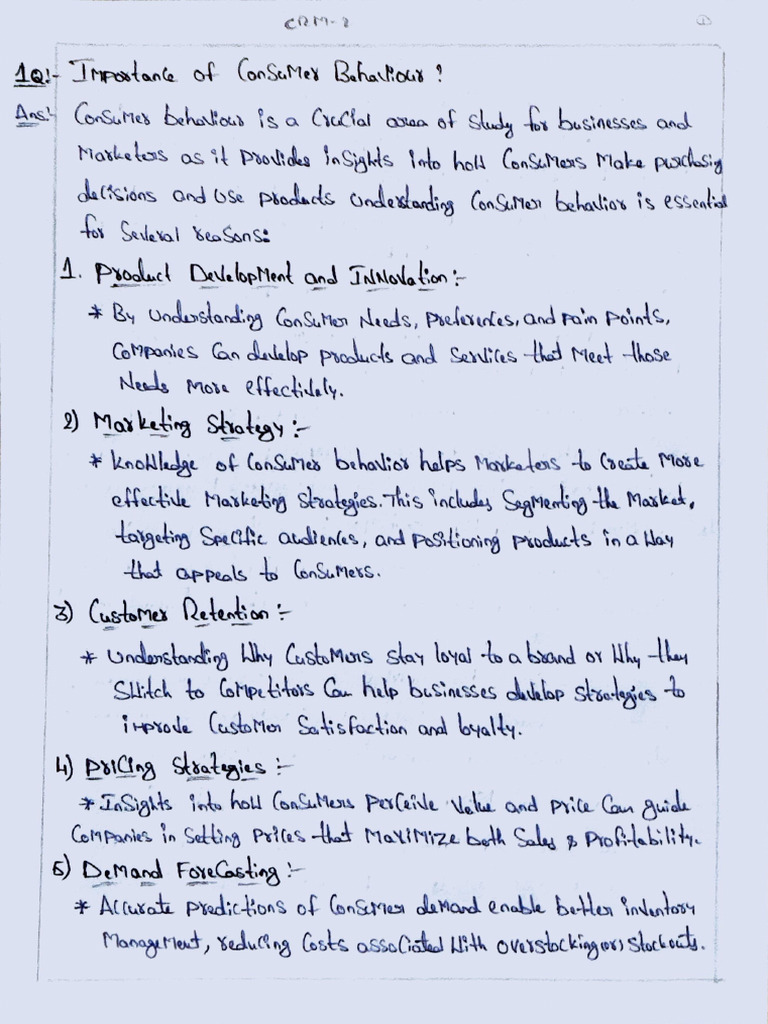 CRM-2 ①
1Q:- Importance of Consumer Behaviour?
Ans:- Consumer behaviour is a crucial area of study for businesses and
Marketers as it provides insights into how Consumers Make purchasing
decisions and use products understanding Consumer behavior is essential
for several reasons:
1. Product Development and Innovation:-
* By understanding Consumer Needs, preferences, and pain points,
Companies Can develop products and services that Meet those
Needs More effectively.
2) Marketing Strategy:-
* Knowledge of Consumer behavior helps Marketers to Create More
effective Marketing strategies. This includes Segmenting the Market,
targeting specific audiences, and positioning products in a Way
that appeals to Consumers.
3) Customer Retention:-
* Understanding Why Customers stay loyal to a brand or Why they
Switch to Competitors Can help businesses develop strategies to
improve Customer Satisfaction and loyalty.
4) Pricing Strategies:-
* Insights into how Consumers perceive Value and price Can guide
Companies in Setting Prices that Maximize both Sales & Profitability.
5) Demand Forecasting:-
* Accurate predictions of Consumer demand enable better inventory
Management, reducing Costs associated With overstocking (or) stockouts.